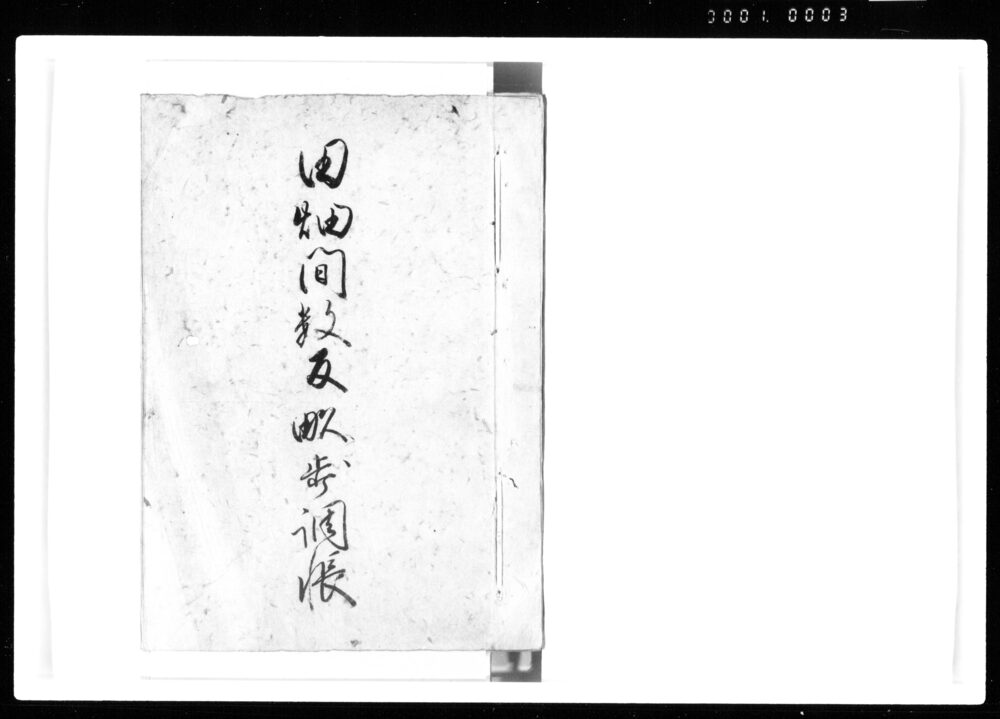 0001. 0003
田畑間数反畝歩調帳